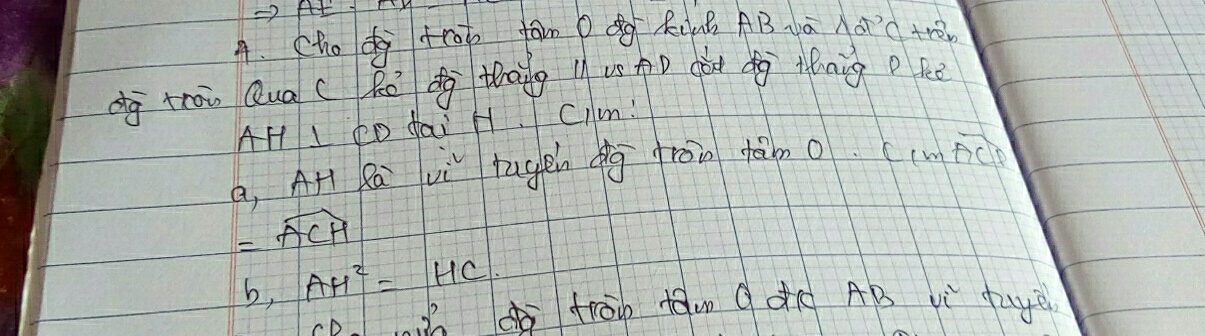 4. Cho đg tròn tâm O đg kính AB và dây C trên
đg tròn Qua C kẻ đg thẳng // vs AD cắt đg thẳng D kẻ
AH ⊥ CD tại H. C/m:
a, AH là vì tuyến đg tròn tâm O. C/m ACD
= ACH
b, AH² = HC.
đg tròn tâm O đk AB vì tuyến